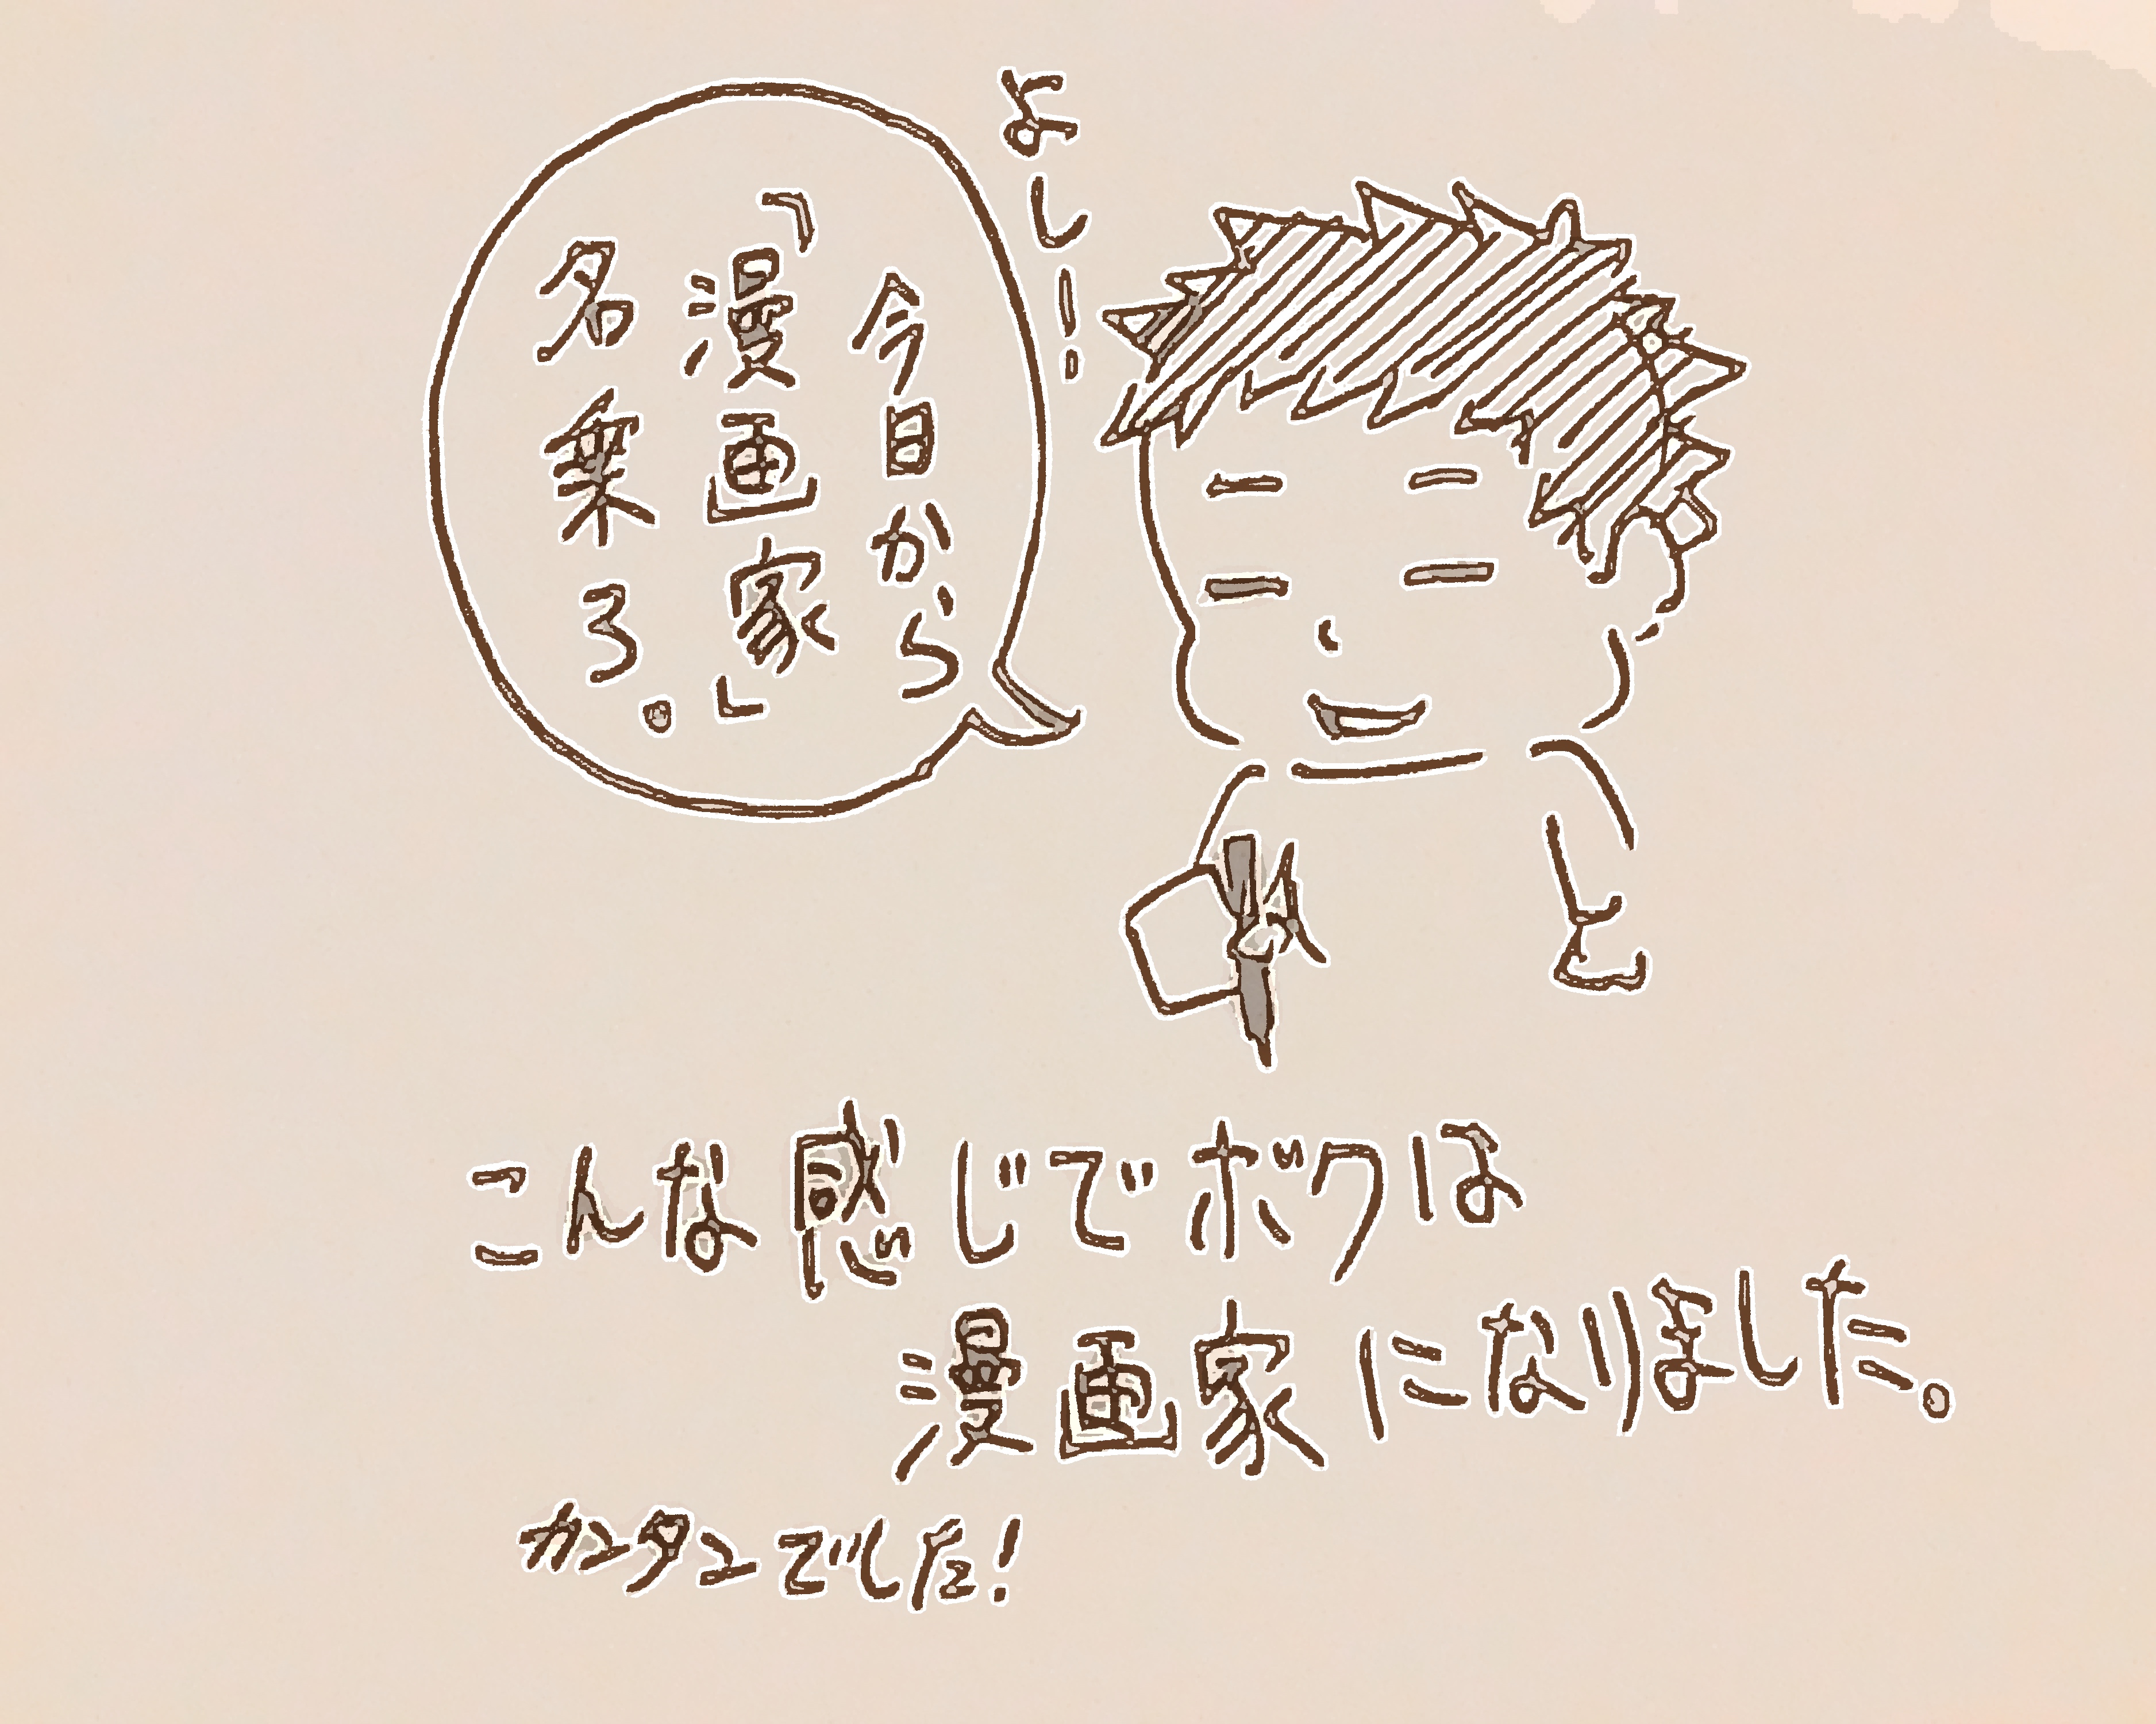 よしー!
今日から
「漫画家」
名乗ろ。
こんな感じでボクは
漫画家になりました。
カンタンでした!